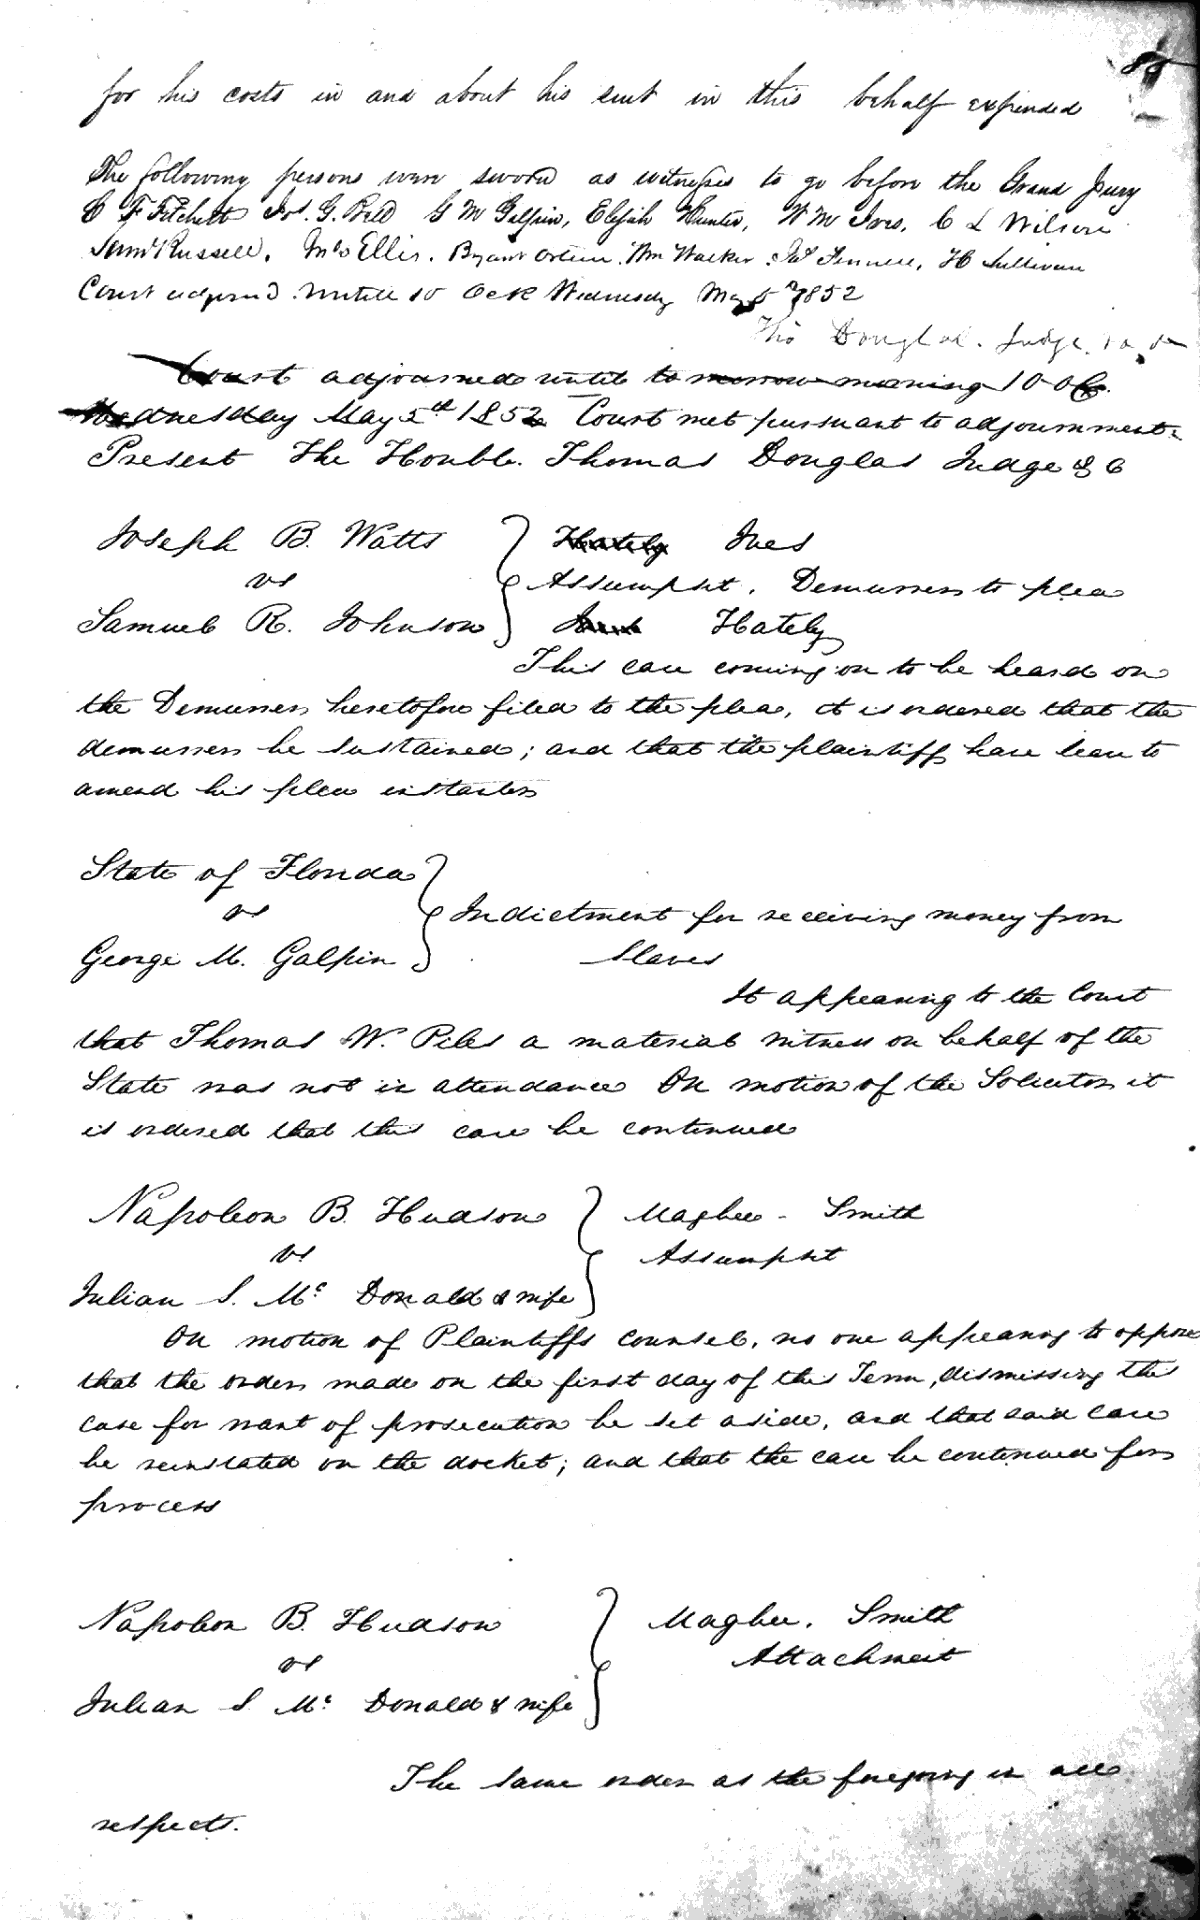 for his costs in and about his suit in this behalf expended
The following persons were sworn as witnesses to go before the Grand Jury
F Fitchett Jos. G. G M Galpin, Elijah Hunter, W M Ives, C L Wilson
Saml Russell. Ellis. Bryant Wm Walker. Jas H Sullivan
Court adjornd untill 10 Ock Wednesday May 5th 1852
Tho Douglas. Judge
Court adjourned until to morrow morning 10 O C
Wednesday May 5th 1852 Court met pursuant to adjournment.
Present The Honble. Thomas Douglas Judge & C
Joseph B. Watts Hately Ives
vs Assumpsit. Demurrer to plea
Samuel R. Johnson Ives Hately
This case coming on to be heard on
the Demurrer heretofore filed to the plea, it is ordered that the
demurrer be sustained; and that the plaintiff have leave to
amend his plea instanter
State of Florida
vs Indictment for receiving money from
George M. Galpin Slaves
It appearing to the Court
that Thomas W. Piles a material witness on behalf of the
State was not in attendance On motion of the Solicitor it
is ordered that this case be continued
Napoleon B. Hudson Magbee - Smith
vs Assumpsit
Julian S. Mc Donald & wife
On motion of Plaintiffs counsel, no one appearing to oppose
that the order made on the first day of this Term, dismissing this
case for want of prosecution be set aside, and that said case
be reinstated on the docket; and that the case be continued for
process
Napoleon B. Hudson Magbee. Smith
vs Attachment
Julian S Mc Donald & wife
The same order as the foregoing in all
respects.